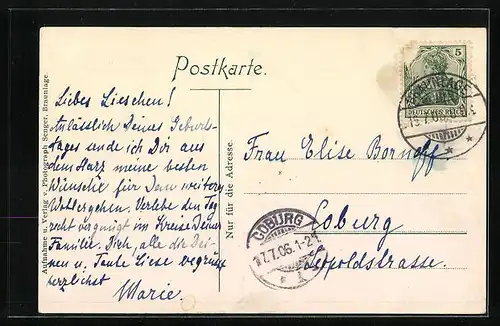 Postkarte.
Liebes Lieschen!
Anlässlich Deines Geburts-
tages sende ich Dir aus
dem Harz meine besten
Wünsche für Dein weiteres
Wohlergehen. Verlebe den Tag
recht vergnügt im Kreise Deiner
Familie. Dich, alle die Dei-
nen u. Tante Liese begrüsst
herzlichst
Marie.
Aufnahme u. Verlag v. Photograph Senger, Braunlage.
Nur für die Adresse.
5
DEUTSCHES REICH
BRAUNLAGE
Frau Elise Bornhoff
Coburg
Leopoldstrasse.
COBURG
17.7.06.1-2
1